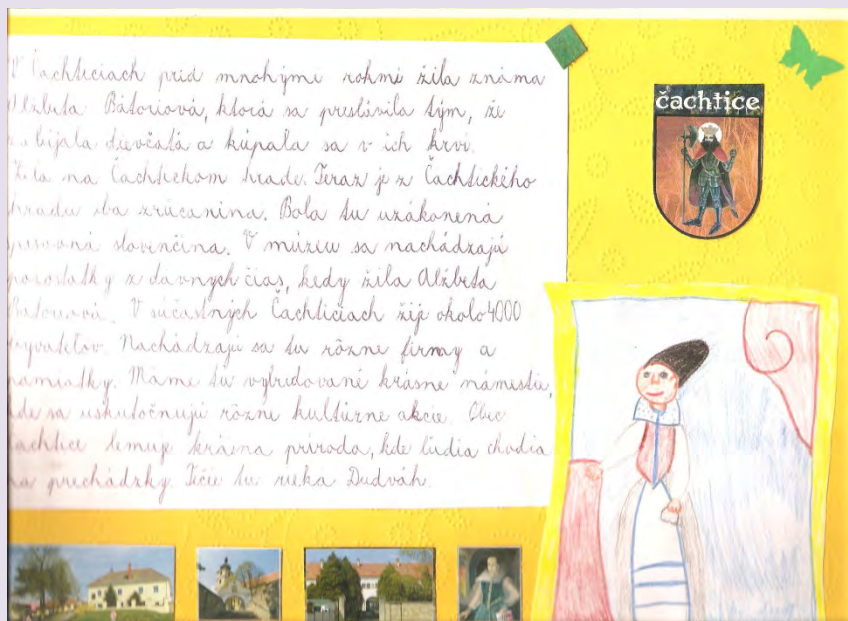 V Čachticiach pred mnohými rokmi žila známa
Alžbeta Bátoriová, ktorá sa preslávila tým, že
zabíjala dievčatá a kúpala sa v ich krvi.
Žila na Čachtickom hrade. Teraz je z Čachtického
hradu iba zrúcanina. Bola tu uzákonená
spisovná slovenčina. V múzeu sa nachádzajú
pozostatky z davnych čias, kedy žila Alžbeta
Bátoriová. V súčastných Čachticiach žije okolo 4000
obyvateľov. Nachádzajú sa tu rôzne firmy a
pamiatky. Máme tu vybudované krásne námestie,
kde sa uskutočnujú rôzne kultúrne akcie. Obec
Čachtice lemuje krásna príroda, kde ľudia chodia
na prechádzky. Tečie tu rieka Dudváh.
čachtice